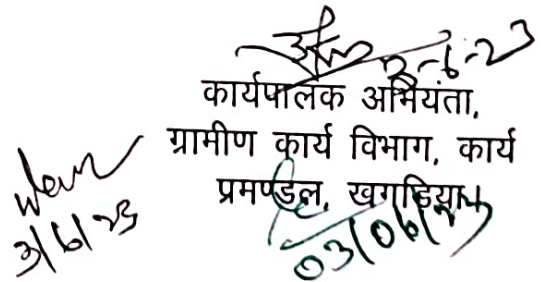 3-6-23
कार्यपालक अभियंता,
ग्रामीण कार्य विभाग, कार्य
प्रमण्डल, खगड़िया
3/6/23
03/06/23